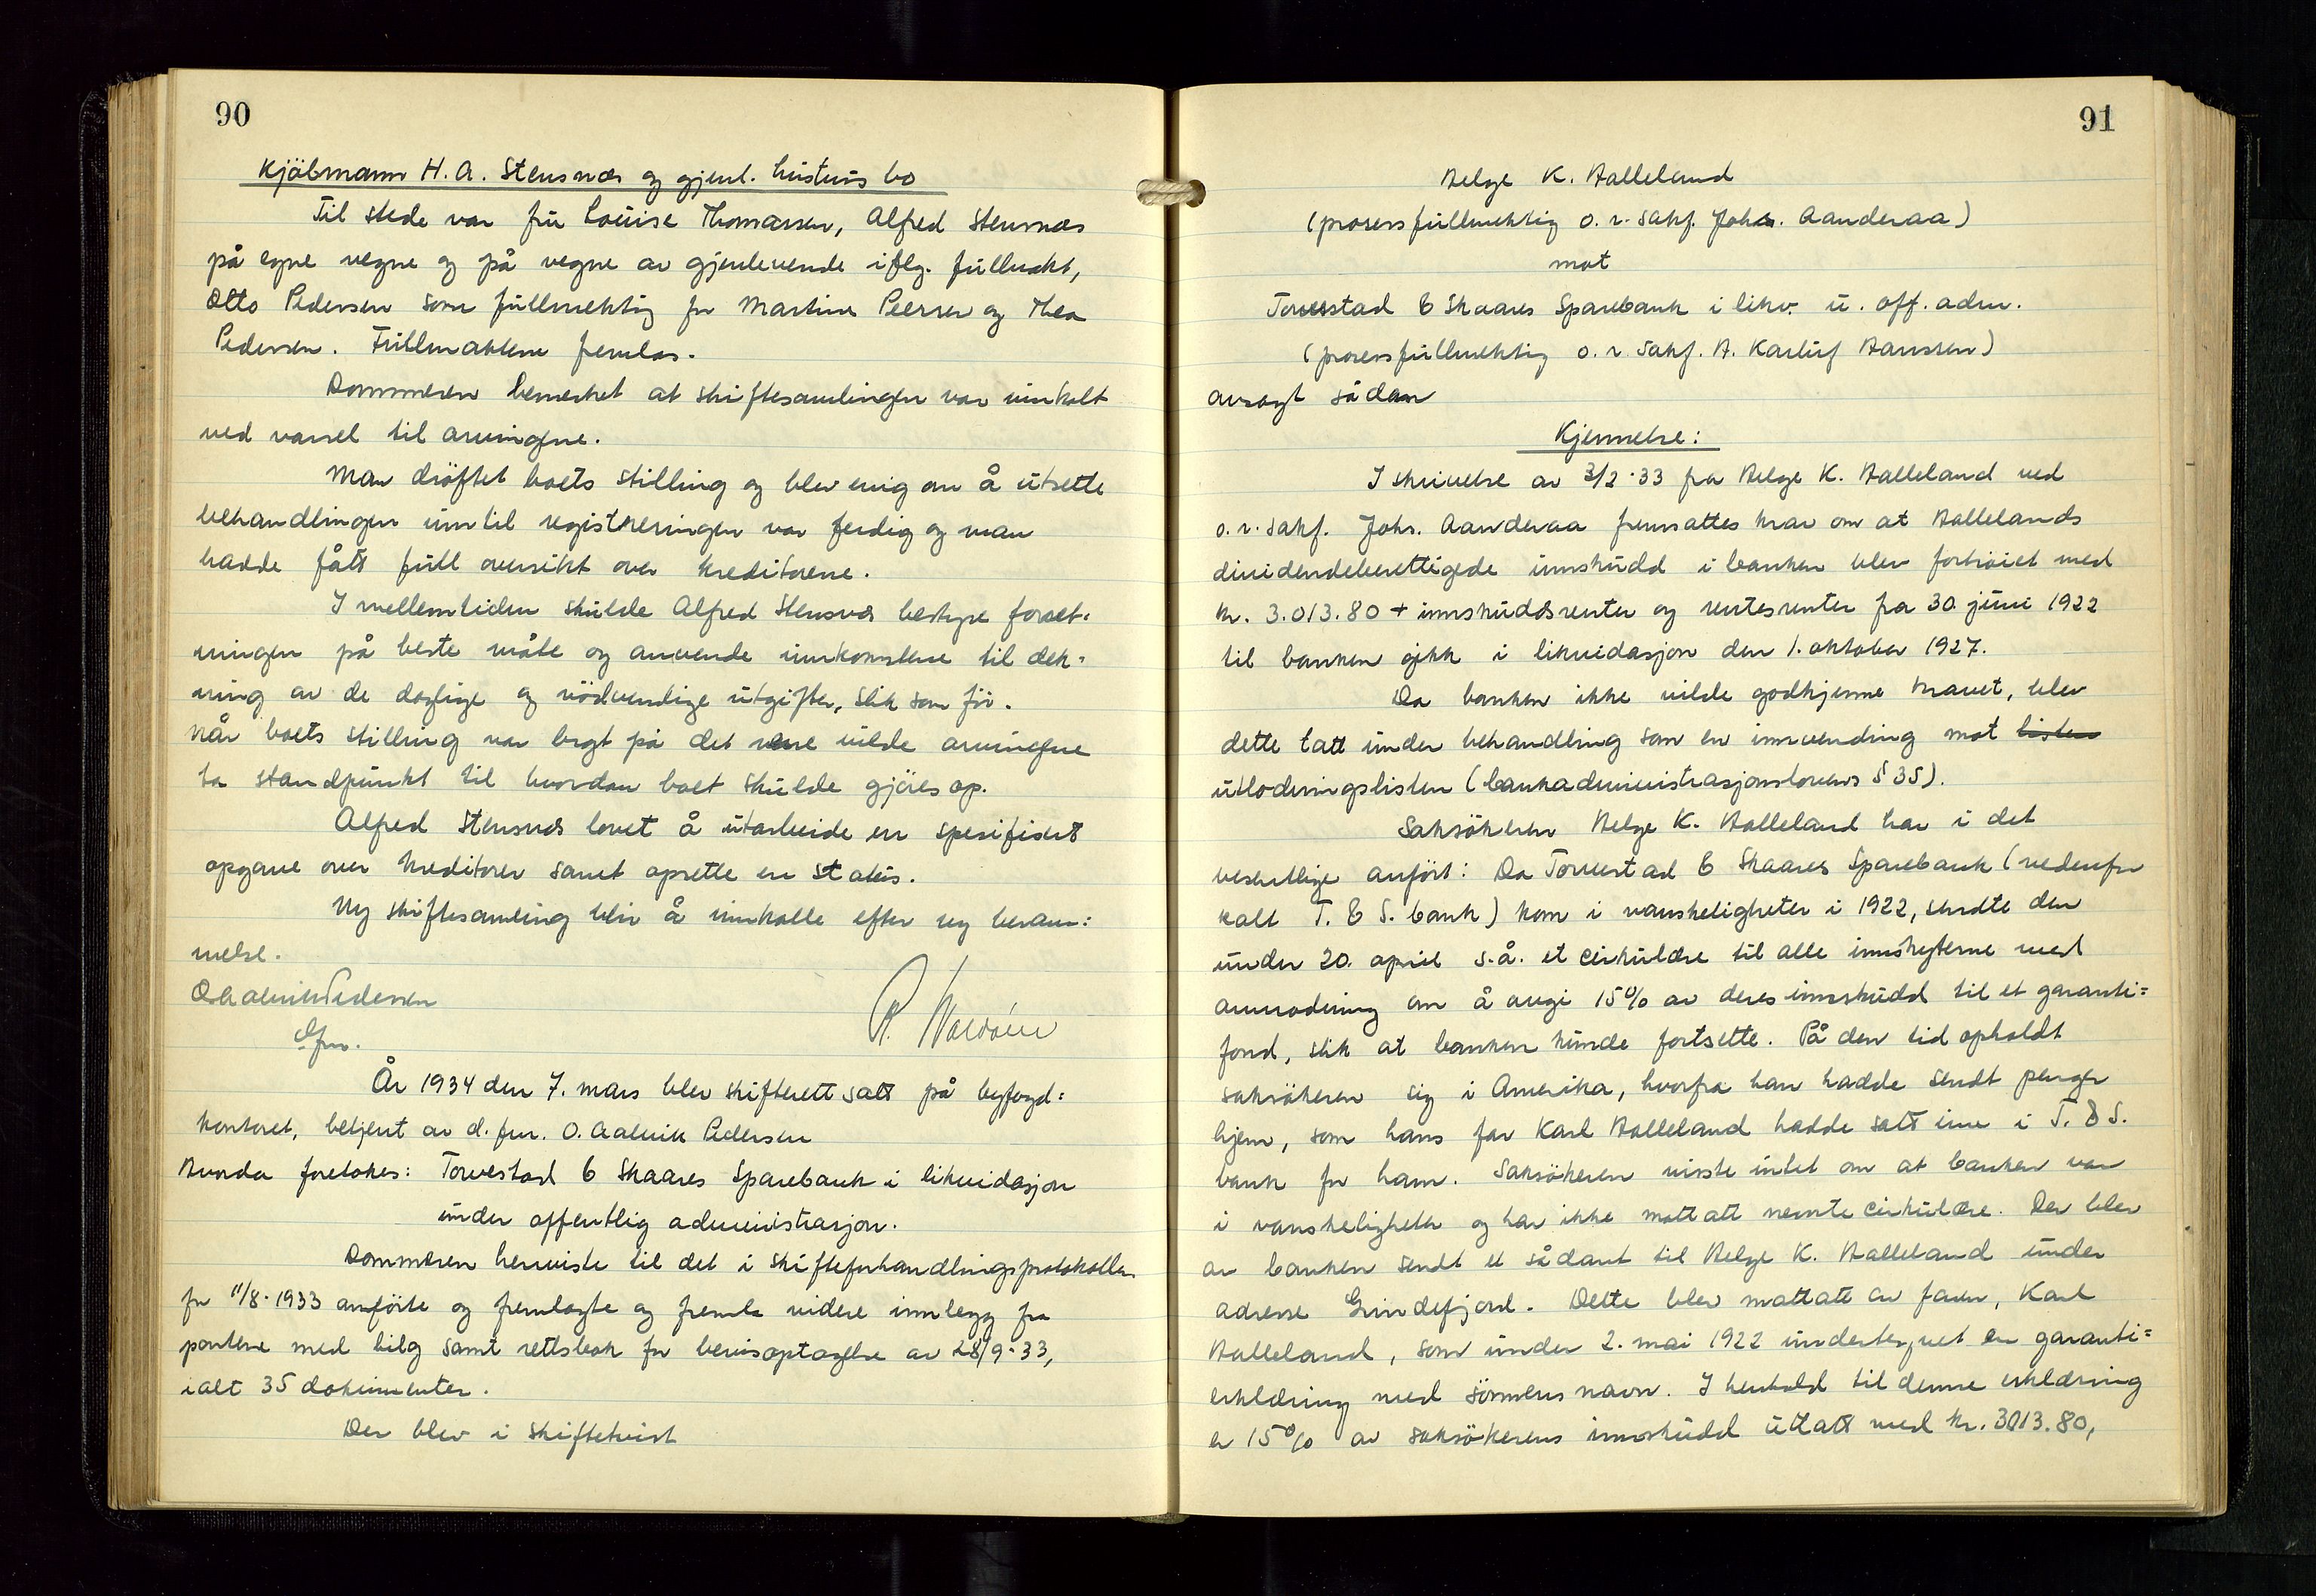 90
Kjöbmann H. A. Stensnæs og gjenl. hustrus bo
Til stede var fru Louise Thomassen, Alfred Stensnæs
på egne vegne og på vegne av gjenlevende iflg. fullmakt,
Otto Pedersen som fullmektig for Martine Peersen og Thea
Pedersen. Fullmaktene fremlas.
Dommeren bemerket at skiftesamlingen var innkalt
ved varsel til arvingene.
Man dröftet boets stilling og blev enig om å utsette
behandlingen inntil registreringen var ferdig og man
hadde fått full oversikt over kreditorene.
I mellemtiden skulde Alfred Stensnæs bestyre forret-
ningen på beste måte og anvende innkomstene til dek-
ning av de daglige og nödvendige utgifter, slik som för.
Når boets stilling var bragt på det rene vilde arvingene
ta standpunkt til hvordan boet skulde gjöres op.
Alfred Stensnæs lovet å utarbeide en spesifisert
opgave over kreditorer samt oprette en status.
Ny skiftesamling blir å innkalle efter ny beram:
melse.
O. Aalvik Pedersen
dfm.
År 1934 den 7. mars blev skifterett satt på byfogd:
kontoret, betjent av d. fm. O. Aalvik Pedersen
Hvorda foretokes: Torvestad & Skaares Sparebank i likvidasjon
under offentlig administrasjon.
Dommeren henviste til det i skifteforhandlingsprotokollen
for 11/8-1933 anförte og fremlagte og fremla videre innlegg fra
partene med bilag samt rettsbok for bevisoptagelse av 28/9-33,
ialt 35 dokumenter.
Der blev i skiftetvist
91
Helge K. Halleland
(prosessfullmektig o. r. sakf. Johs. Aanderaa)
mot
Torvestad & Skaares Sparebank i likv. u. off. adm.
(prosessfullmektig o. r. sakf. H. Karluf Hanssen)
avsagt sådan
Kjennelse:
I skrivelse av 3/2-33 fra Helge K. Halleland ved
o. r. sakf. Johs. Aanderaa fremsattes krav om at Hallelands
dividendeberettigede innskudd i banken blev forhöiet med
kr. 3.013.80 + innskuddsrenter og rentesrenter fra 30. juni 1922
til banken gikk i likvidasjon den 1. oktober 1927.
Da banken ikke vilde godkjenne kravet, blev
dette tatt under behandling som en innvending mot listen
utlodningslisten (bankadministrasjonslovens § 35).
Saksökeren Helge K. Halleland har i det
vesentlige anfört: Da Torvestad & Skaares Sparebank (nedenfor
kalt T. & S. bank) kom i vanskeligheter i 1922, sendte den
under 20. april s.å. et cirkulære til alle innskyterne med
anmodning om å avgi 15% av deres innskudd til et garanti=
fond, slik at banken kunde fortsette. På den tid opholdt
saksökeren sig i Amerika, hvorfra han hadde sendt penger
hjem, som hans far Karl Halleland hadde satt inn i T. & S.
bank for ham. Saksökeren visste intet om at banken var
i vanskeligheter og har ikke mottatt nevnte cirkulære. Der blev
av banken sendt et sådant til Helge K. Halleland under
adresse Grindefjord. Dette blev mottatt av faren, Karl
Halleland, som under 2. mai 1922 undertegnet en garanti=
erklæring med sönnens navn. I henhold til denne erklæring
er 15% av saksökerens innskudd uttatt med kr. 3013.80,